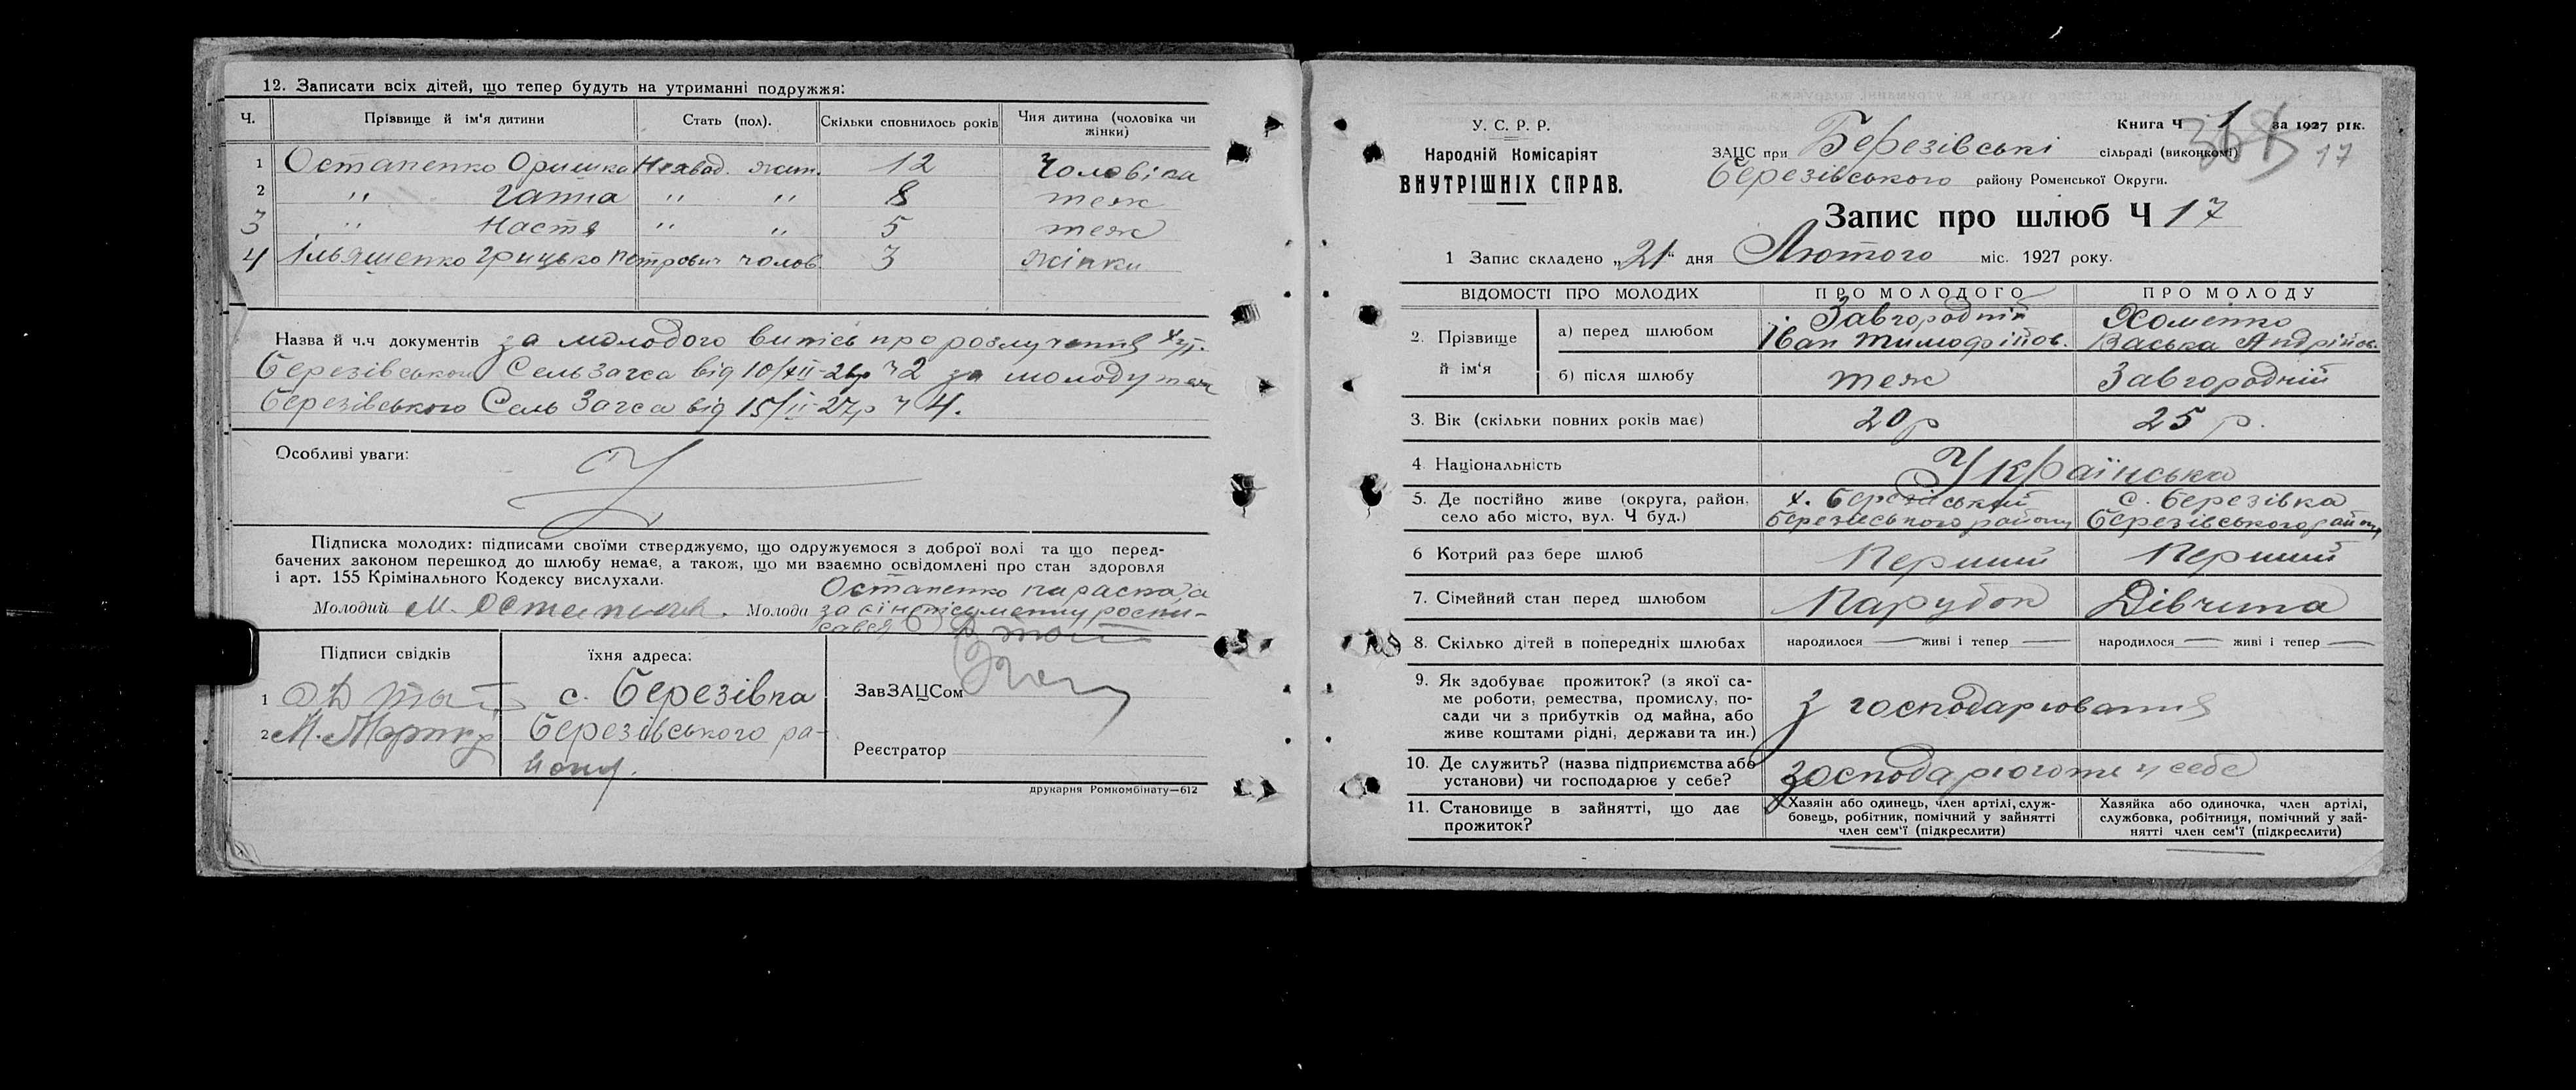 12. Записати всіх дітей, що тепер будуть на утриманні подружжя:
Ч. Прізвище й ім'я дитини Стать (пол). Скільки сповнилось років Чия дитина (чоловіка чи жінки)
1 Остапенко Оришка жин. 12 Чоловіка
2 " Ганна " " 8 теж
3 " Настя " " 5 теж
4 Ільяшенко Грицько Петрович чолов. 3 Жінки
Назва й ч.ч документів за молодого випись про розлучення
Березівського СельЗагса від 10/XII-26р ч 2 за молоду теж
Березівського Сель Загса від 15/II-27р ч 4.
Особливі уваги:
Підписка молодих: підписами своїми стверджуємо, що одружуємося з доброї волі та що перед-
бачених законом перешкод до шлюбу немає, а також, що ми взаємно освідомлені про стан здоровля
і арт. 155 Крімінального Кодексу вислухали.
Молодий М. Остапенко. Молода Остапенко Параска а
за її неписьменну роспи-
сався
Підписи свідків їхня адреса:
1 с. Березівка
2 М. Березівського ра-
йону.
ЗавЗАЦСом
Реєстратор
друкарня Ромкомбінату—612
У. С. Р. Р.
Народній Комісаріят
ВНУТРІШНІХ СПРАВ.
Книга Ч 1 за 1927 рік.
17
ЗАЦС при Березівські сільраді (виконкомі)
Березівського району Роменської Округи.
Запис про шлюб Ч 17
1 Запис складено „21" дня Лютого міс. 1927 року.
ВІДОМОСТІ ПРО МОЛОДИХ ПРО МОЛОДОГО ПРО МОЛОДУ
2. Прізвище й ім'я а) перед шлюбом Завгородній Іван Тимофійов. Хоменко Васька Андрійов.
б) після шлюбу теж Завгородній
3. Вік (скільки повних років має) 20р 25 р.
4. Національність Українська
5. Де постійно живе (округа, район, село або місто, вул. Ч буд.) х. Березівський Березівського району с. Березівка Березівського району
6 Котрий раз бере шлюб Перший Перший
7. Сімейний стан перед шлюбом Парубок Дівчина
8. Скілько дітей в попередніх шлюбах народилося — живі і тепер — народилося — живі і тепер —
9. Як здобуває прожиток? (з якої са-
ме роботи, ремества, промислу, по-
сади чи з прибутків од майна, або
живе коштами рідні, держави та ин.) з господарювання
10. Де служить? (назва підприємства або
установи) чи господарює у себе? у себе
11. Становище в зайнятті, що дає
прожиток?
Хазяін або одинець, член артілі, служ-
бовець, робітник, помічний у зайнятті
член сем'ї (підкреслити)
Хазяйка або одиночка, член артілі,
службовка, робітниця, помічний у зай-
нятті член сем'ї (підкреслити)